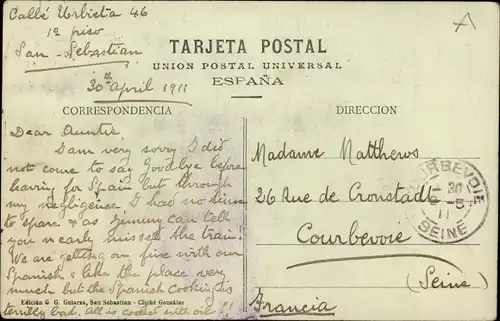 Callé Urbieta 46
1º piso
San-Sebastian
30th April 1911
TARJETA POSTAL
UNION POSTAL UNIVERSAL
ESPAÑA
CORRESPONDENCIA
Dear Auntie,
I am very sorry I did
not come to say Goodbye before
leaving for Spain but through
my negligence I had no time
to spare & as Jimmy can tell
you nearly missed the train!
We are getting on fine with our
Spanish & like the place very
much but the Spanish Cooking is
terribly bad. All is cooked with oil!!
Edición G. G. Galarza, San Sebastian - Cliché González
DIRECCION
Madame Matthews
26 Rue de Cronstadt
Courbevoie
(Seine)
Francia
COURBEVOIE
30
-5
11
SEINE